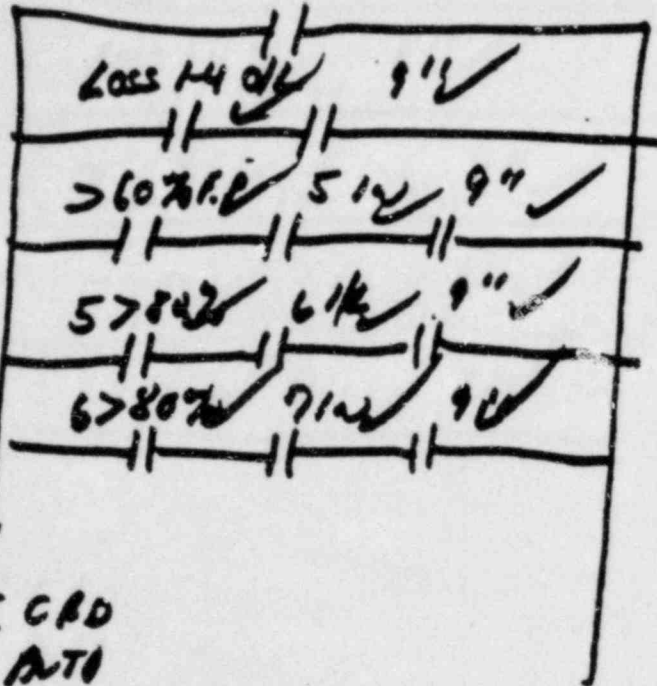 Loss 1-4 O/L 9"
>60% F.P 5 IN 9"
5>80% 6 IN 9"
6>80% 7 IN 9"
CRD
AUTO